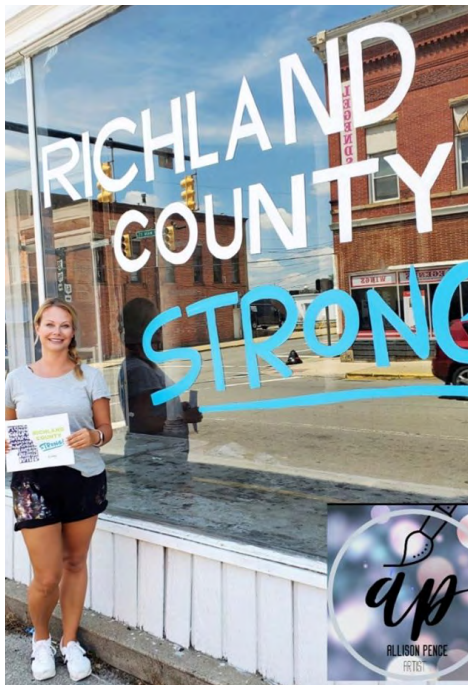 RICHLAND
COUNTY
STRONG
LEGENDS
WINGS
RICHLAND
COUNTY
STRONG!
ap
ALLISON PENCE
ARTIST